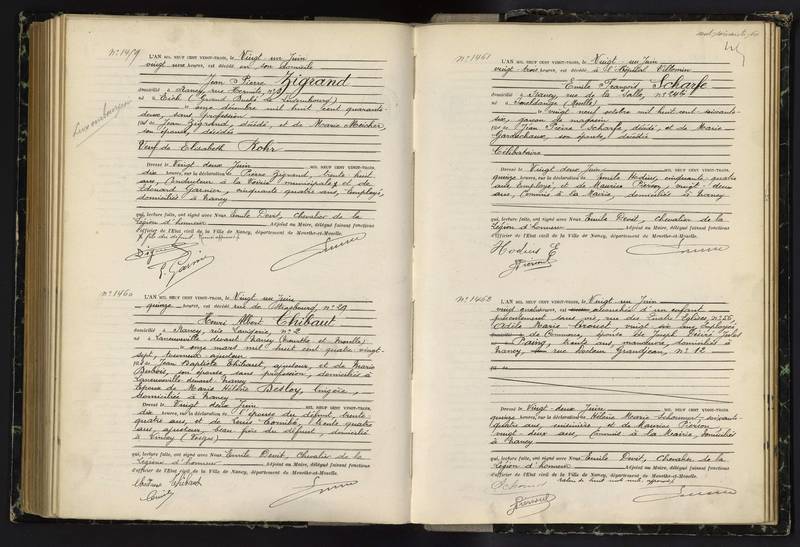 N° 1459
L'AN MIL NEUF CENT VINGT-TROIS, le Vingt un Juin
vingt une heures, est décédé en son domicile
Jean Pierre Zigrand
domicilié à Nancy, rue
né à Eich (Grand Duché de Luxembourg)
onze décembre mil huit cent quarante
deux, sans profession
fils de Jean Zigrand, décédé, et de Marie Meisher,
son épouse, décédée
Veuf de Elisabeth Rohr
Devant le Vingt deux Juin MIL NEUF CENT VINGT-TROIS,
dix heures, sur la déclaration de Pierre Zigrand, trente huit
ans, Conducteur à la Voirie municipale et de
Edouard Garnier, cinquante quatre ans, Employé,
domiciliés à Nancy
qui, lecture faite, ont signé avec Nous Emile Devit, Chevalier de la
Légion d'honneur Adjoint au Maire, délégué faisant fonctions
d'officier de l'Etat civil de la Ville de Nancy, département de Meurthe-et-Moselle.
fils du défunt
Luxembourgeois
N° 1460
L'AN MIL NEUF CENT VINGT-TROIS, le Vingt un Juin
quinze heures, est décédé rue de Strasbourg n° 29
Henri Albert Thibaut
domicilié à Nancy, rue n° 2
né à Laneuveville devant Nancy (Meurthe et Moselle)
onze mars mil huit cent quatre vingt-
sept, tourneur ajusteur
fils de Jean Baptiste Thibaut, ajusteur, et de Marie
Dubois, son épouse, sans profession, domiciliés à
Laneuveville devant Nancy
Epoux de Marie Hélène Besloy, lingère,
domiciliée à Nancy
Devant le Vingt deux Juin MIL NEUF CENT VINGT-TROIS,
dix heures, sur la déclaration de l'épouse du défunt, trente
quatre ans, et de Louis trente quatre
ans, ajusteur, beau frère du défunt, domicilié
à Vincey (Vosges)
qui, lecture faite, ont signé avec Nous Emile Devit, Chevalier de la
Légion d'honneur Adjoint au Maire, délégué faisant fonctions
d'officier de l'Etat civil de la Ville de Nancy, département de Meurthe-et-Moselle.
N° 1461
L'AN MIL NEUF CENT VINGT-TROIS, le Vingt un Juin
vingt trois heures, est décédé à l'Hôpital Villemin
Emile François Scharfe
domicilié à Nancy, rue de la Salle, n°
né à (Moselle)
vingt neuf octobre mil huit cent soixante-
six, garçon de magasin
fils de Jean Pierre Scharfe, décédé, et de Marie
son épouse, décédée
Célibataire
Devant le Vingt deux Juin MIL NEUF CENT VINGT-TROIS,
quinze heures, sur la déclaration de Emile Hodius, cinquante quatre
ans, Employé, et de Maurice Piéron, vingt deux
ans, Commis à la Mairie, domiciliés à Nancy
qui, lecture faite, ont signé avec Nous Emile Devit, Chevalier de la
Légion d'honneur Adjoint au Maire, délégué faisant fonctions
d'officier de l'Etat civil de la Ville de Nancy, département de Meurthe-et-Moselle.
Hodius E
N° 1462
L'AN MIL NEUF CENT VINGT-TROIS, le Vingt un Juin
vingt heures, est accouchée d'un enfant
présentement sans vie, rue des Quatre Eglises, n° 55,
Adèle Marie vingt six ans, Employée
de Commerce, épouse de Joseph Pierre Jules
trente ans, manœuvre, domiciliés à
Nancy, rue Grandjean, n° 12
Devant le Vingt deux Juin MIL NEUF CENT VINGT-TROIS,
quinze heures, sur la déclaration de Marie soixante-
quatre ans, et de Maurice Piéron,
vingt deux ans, Commis à la Mairie, domiciliés
à Nancy
qui, lecture faite, ont signé avec Nous Emile Devit, Chevalier de la
Légion d'honneur Adjoint au Maire, délégué faisant fonctions
d'officier de l'Etat civil de la Ville de Nancy, département de Meurthe-et-Moselle.